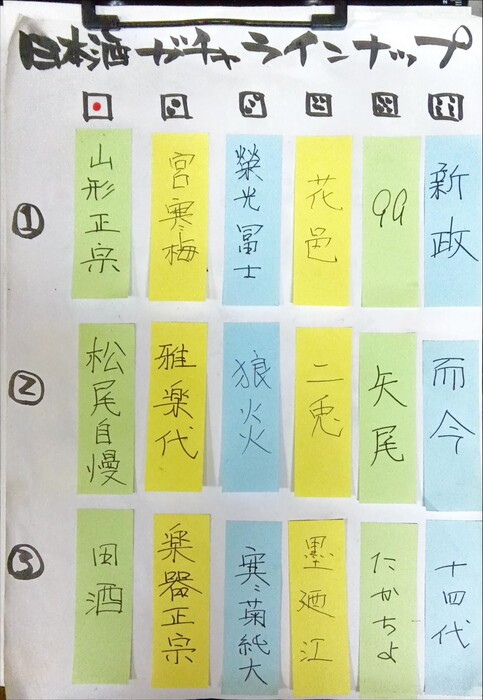 日本酒ガチャラインナップ
① 山形正宗 宮寒梅 榮光冨士 花邑 99 新政
② 松尾自慢 雅楽代 狼火 二兎 矢尾 而今
③ 田酒 楽器正宗 寒菊純大 墨廼江 たかちよ 十四代